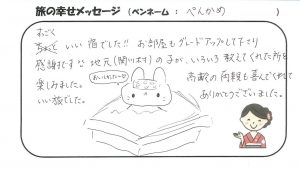 旅の幸せメッセージ (ペンネーム: ぺんかめ )
すごく
ちょっと いい宿でした!! お部屋もグレードアップして下さり
感謝です 地元(関川村)の子が、いろいろ教えてくれた所を
楽しみました。 高齢の両親も喜んでくれて
いい旅でした。 ありがとうございました。
おいしかったー